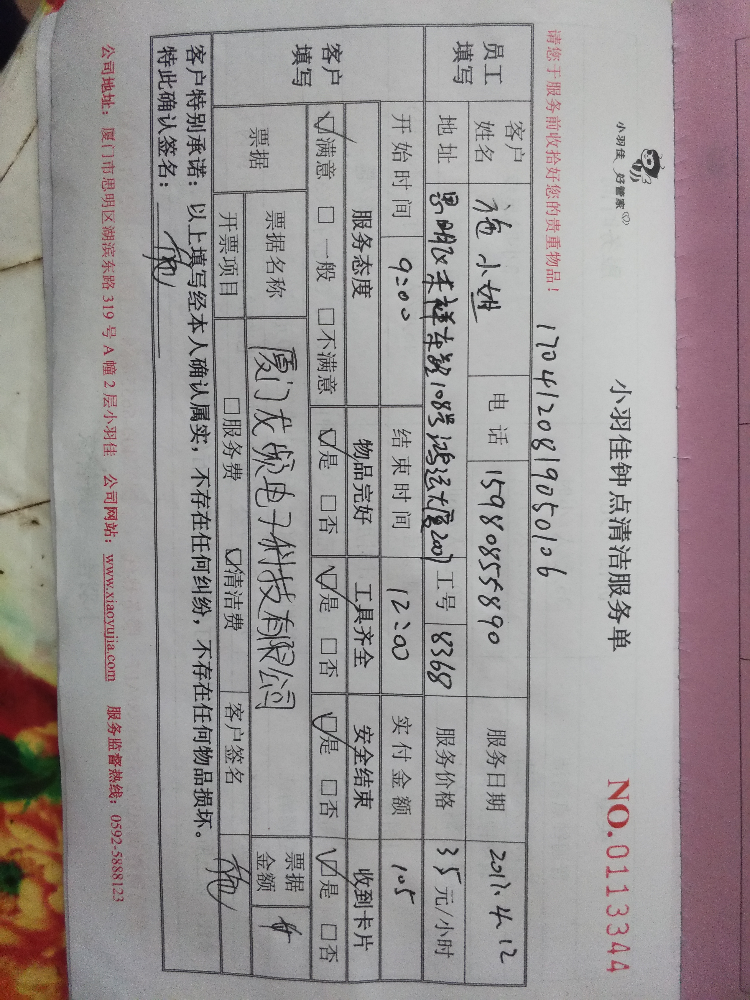 小羽佳 好管家
小羽佳钟点清洁服务单
NO.0113344
请您于服务前收拾好您的贵重物品！
1704120819050106
员工填写
客户姓名 施小姐 电话 15980855890 服务日期 2017.4.12
地址 思明区末祥东路108号鸿运大厦2007 工号 8368 服务价格 35元/小时
开始时间 9:00 结束时间 12:00 实付金额 105
客户填写
服务态度 物品完好 工具齐全 安全结束 收到卡片
☑满意 □一般 □不满意 ☑是 □否 ☑是 □否 ☑是 □否 ☑是 □否
票据 票据名称 厦门友 电子科技有限公司 票据金额
开票项目 □服务费 ☑清洁费 客户签名
客户特别承诺：以上填写经本人确认属实，不存在任何纠纷，不存在任何物品损坏。
特此确认签名：
公司地址：厦门市思明区湖滨东路 319 号 A 幢 2 层小羽佳 公司网站：www.xiaoyujia.com 服务监督热线：0592-5888123